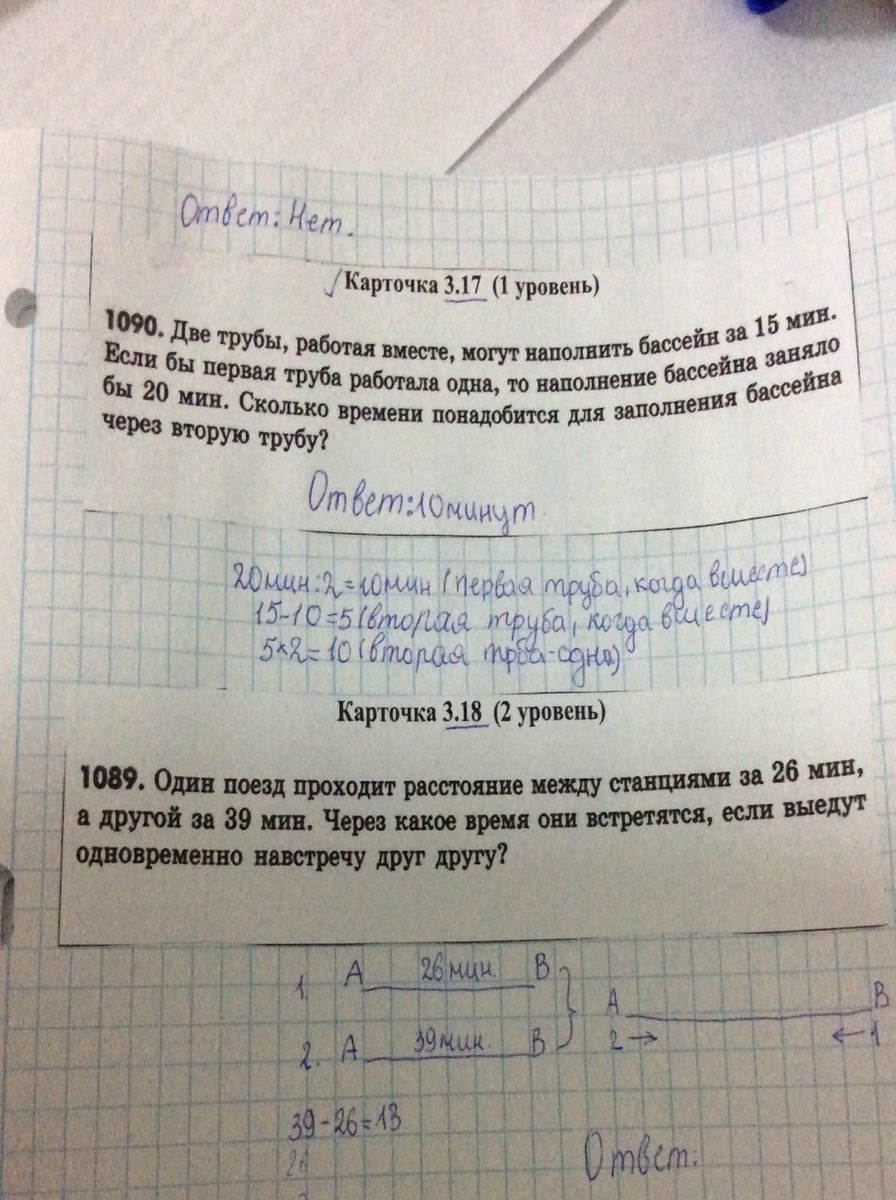 Ответ: Нет.
Карточка 3.17 (1 уровень)
1090. Две трубы, работая вместе, могут наполнить бассейн за 15 мин.
Если бы первая труба работала одна, то наполнение бассейна заняло
бы 20 мин. Сколько времени понадобится для заполнения бассейна
через вторую трубу?
Ответ: 10 минут
20мин:2=10мин (первая труба, когда вместе)
15-10=5 (вторая труба, когда вместе)
5×2=10 (вторая -одна)
Карточка 3.18 (2 уровень)
1089. Один поезд проходит расстояние между станциями за 26 мин,
а другой за 39 мин. Через какое время они встретятся, если выедут
одновременно навстречу друг другу?
1. A 26 мин. B
2. A 39 мин. B
A B
2 → ← 1
39-26=13
26
Ответ: